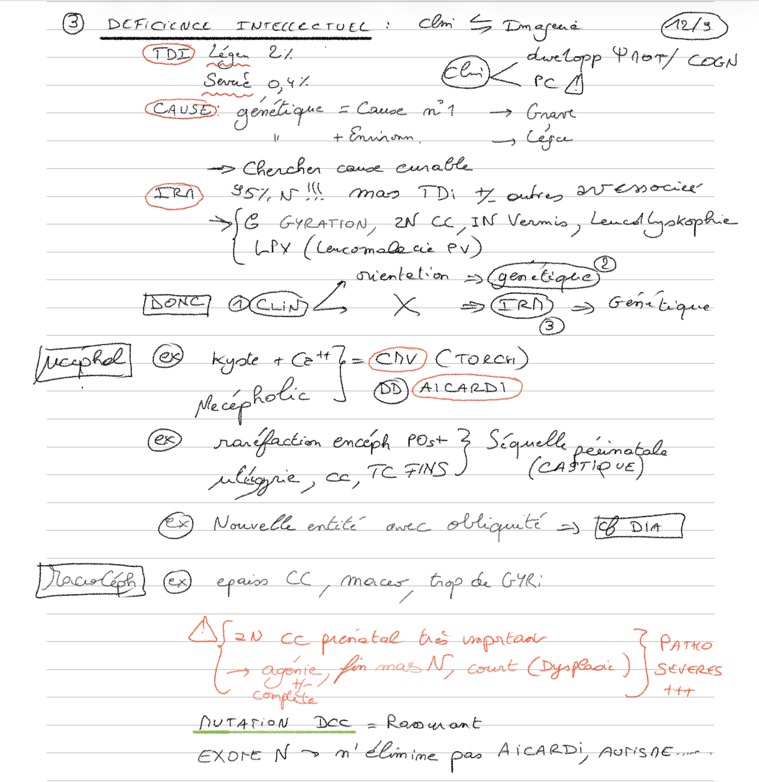 ③ DEFICIENCE INTELLECTUEL : Clini ⇆ Imagerie 12/9
TDI Léger 2% Clini < développ ΨMOT / COGN
Sévère 0,4% PC ⚠
CAUSE : génétique = Cause n°1 → Grave
" + Environn. → Léger
→ Chercher cause curable
IRM 95% N !!! mais TDI +/- autres associée
→ { GYRATION, 2N CC, IN Vermis, Leucodystrophie
LPV (Leucomalacie PV)
orientation ⇒ génétique ②
DONC ① CLIN < X ⇒ IRM ⇒ Génétique
③
μcéphal ex Kyste + Ca++ } = CMV (TORCH)
Mecépholic DD AICARDI
ex raréfaction encéph POst } Séquelle périnatale
, CC, TC FINS (CASTIQUE)
ex Nouvelle entité avec obliquité ⇒ cf DIA
Macrocéph ex epaiss CC, macro, trop de GYRi
⚠ { 2N CC prénatal très important } PATHO
→ agénie, fin mas N, court (Dysplasie) SEVERES
+/- +++
complète
MUTATION DCC = Rassurant
EXOME N → n'élimine pas AICARDI, AUTISME.....